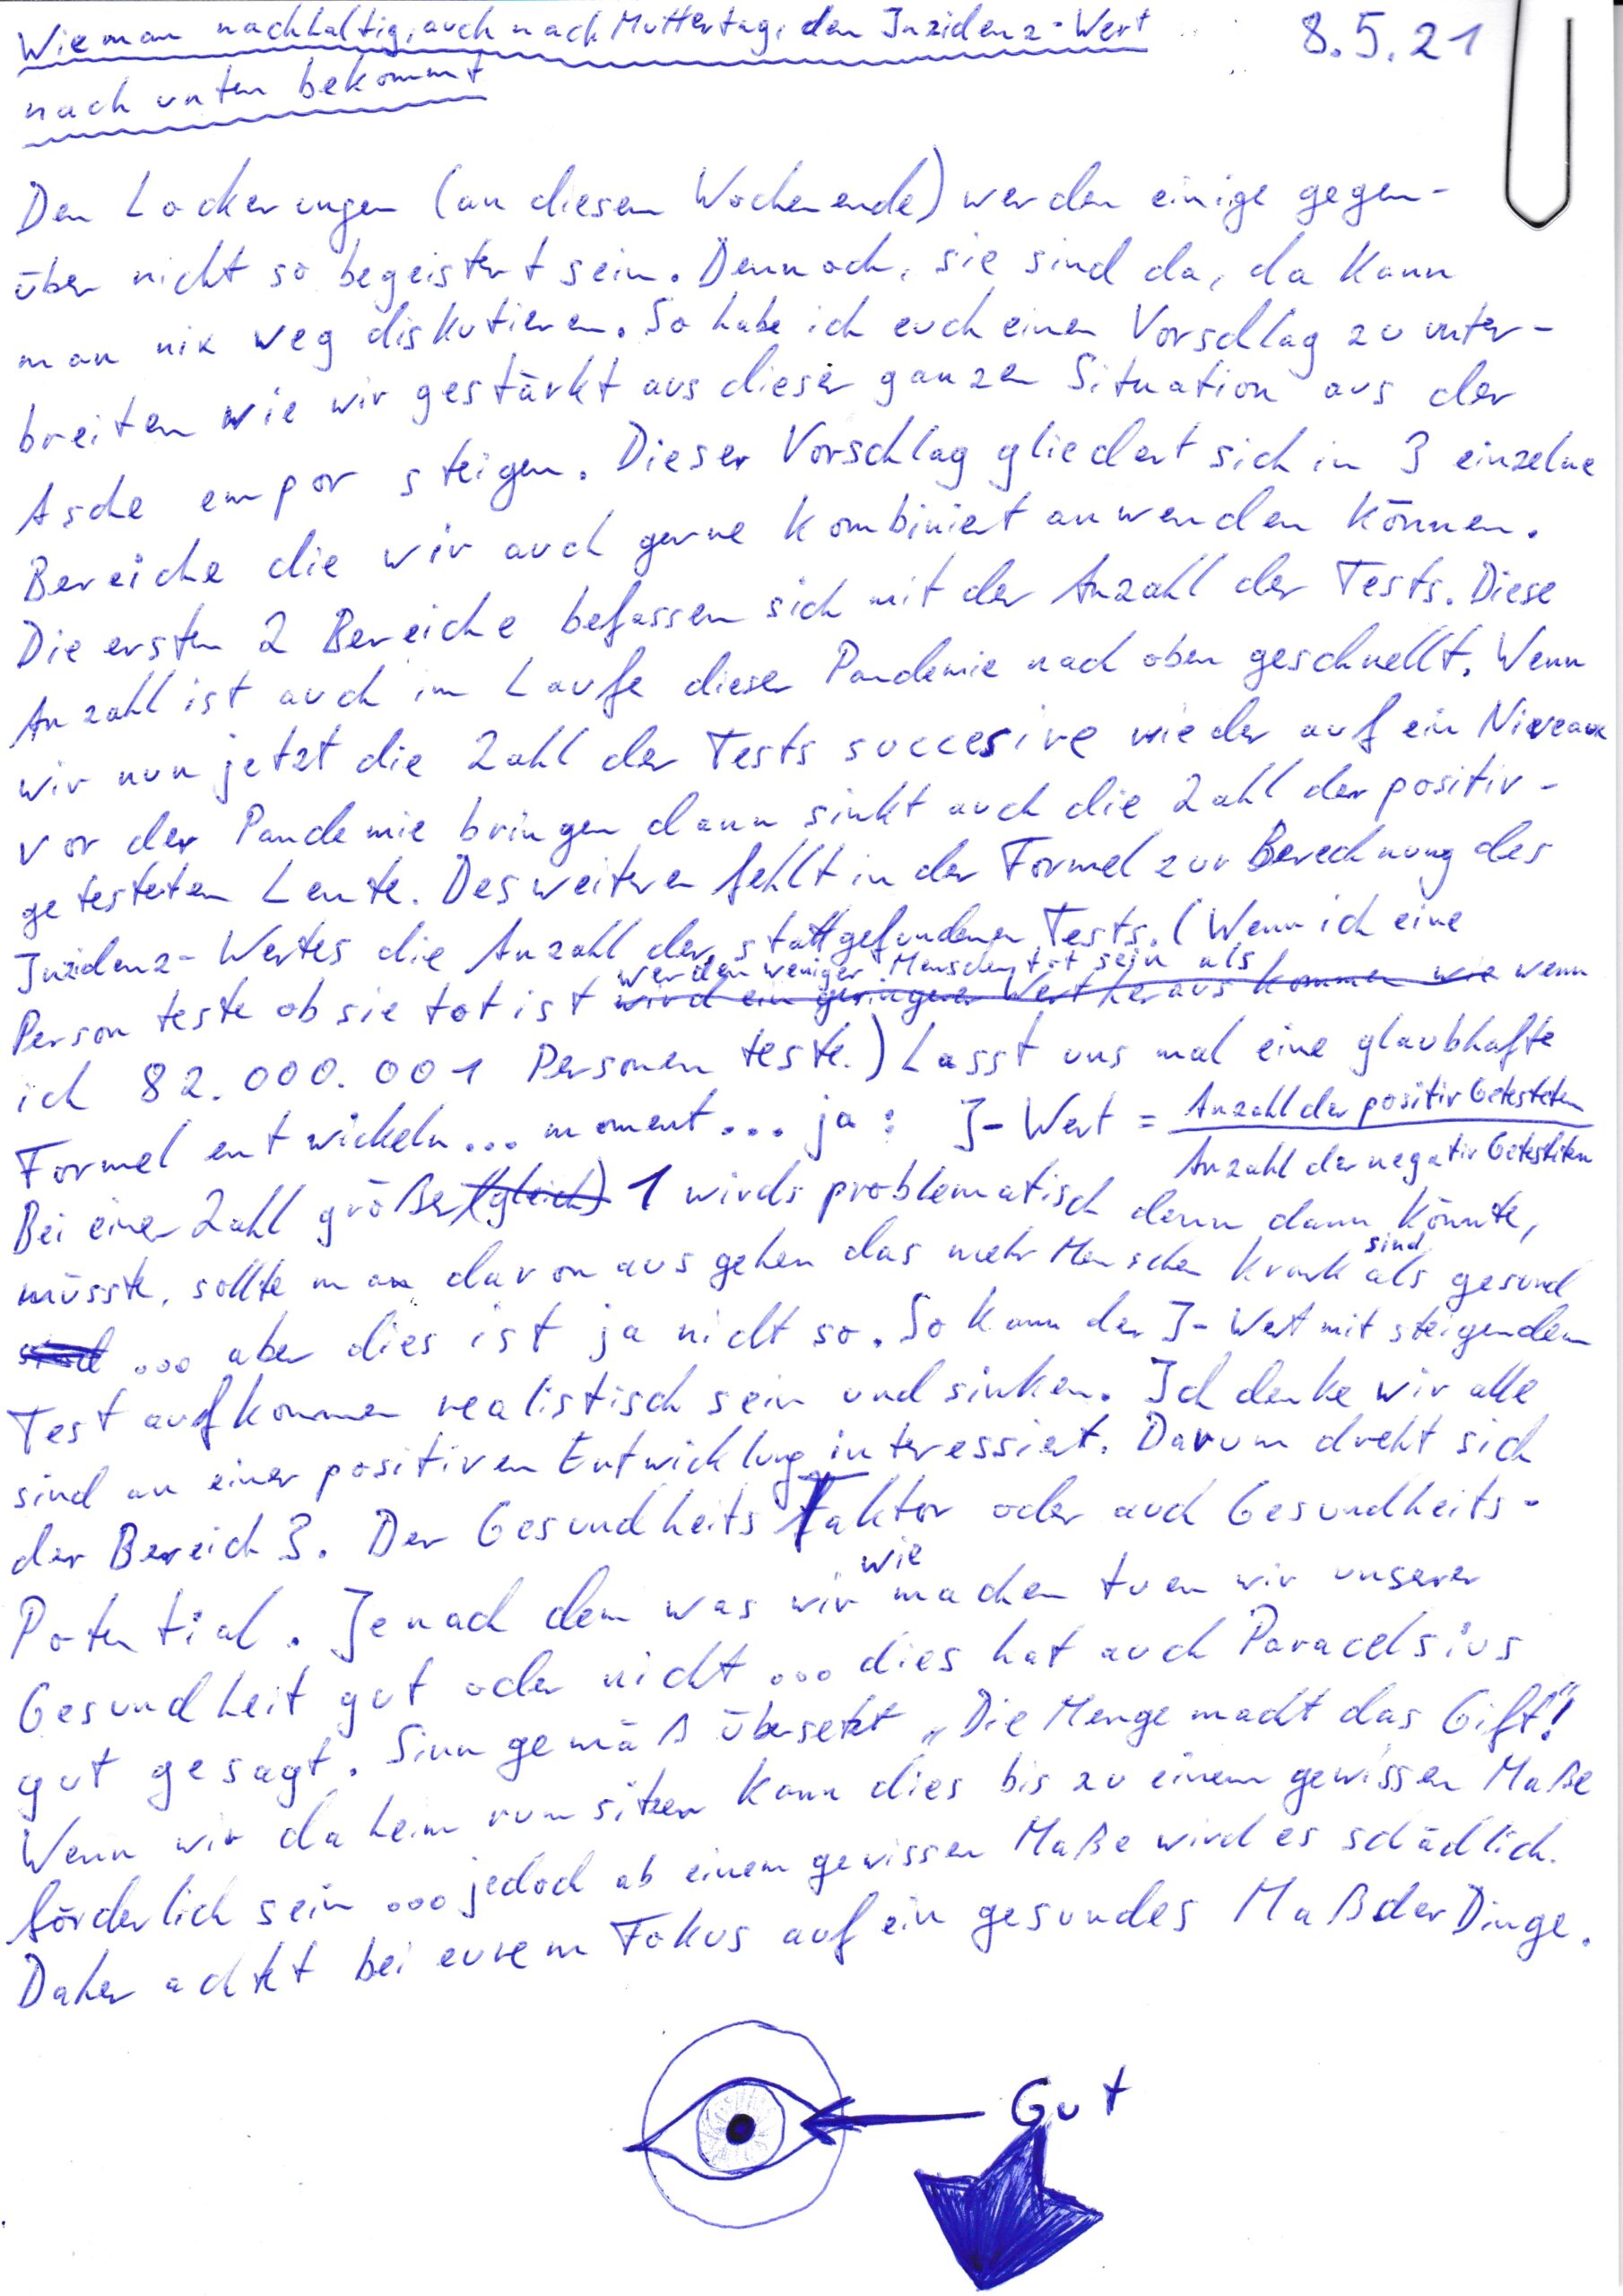 Wie man nachhaltig, auch nach Muttertag, den Inzidenz-Wert
8.5.21
nach unten bekommt
Den Lockerungen (an diesem Wochenende) werden einige gegen-
über nicht so begeistert sein. Dennoch, sie sind da, da kann
man nix weg diskutieren. So habe ich euch einen Vorschlag zu unter-
breiten wie wir gestärkt aus dieser ganzen Situation aus der
Asche empor steigen. Dieser Vorschlag gliedert sich in 3 einzelne
Bereiche die wir auch gerne kombiniert anwenden können.
Die ersten 2 Bereiche befassen sich mit der Anzahl der Tests. Diese
Anzahl ist auch im Laufe dieser Pandemie nach oben geschnellt. Wenn
wir nun jetzt die Zahl der Tests succesive wieder auf ein Niveaux
vor der Pandemie bringen dann sinkt auch die Zahl der positiv-
getesteten Leute. Desweiteren fehlt in der Formel zur Berechnung des
Inzidenz-Wertes die Anzahl der stattgefundenen Tests. (Wenn ich eine
werden weniger Menschen tot sein als
Person teste ob sie tot ist wird ein geringerer Wert heraus kommen wie wenn
ich 82.000.001 Personen teste.) Lasst uns mal eine glaubhafte
Formel entwickeln... moment... ja: I-Wert = Anzahl der positiv Getesteten
Anzahl der negativ Getesteten
Bei einer Zahl größer (gleich) 1 wirds problematisch denn dann könnte,
müsste, sollte man davon ausgehen das mehr Menschen krank sind als gesund
sind ... aber dies ist ja nicht so. So kann der I-Wert mit steigendem
Test aufkommen realistisch sein und sinken. Ich denke wir alle
sind an einer positiven Entwicklung interessiert. Darum dreht sich
der Bereich 3. Der Gesundheits Faktor oder auch Gesundheits-
Potential. Je nach dem was wir wie machen tuen wir unserer
Gesundheit gut oder nicht ... dies hat auch Paracelsius
gut gesagt. Sinngemäß übersetzt „Die Menge macht das Gift"!
Wenn wir daheim rumsitzen kann dies bis zu einem gewissen Maße
förderlich sein ... jedoch ab einem gewissen Maße wird es schädlich.
Daher achtet bei eurem Fokus auf ein gesundes Maß der Dinge.
Gut